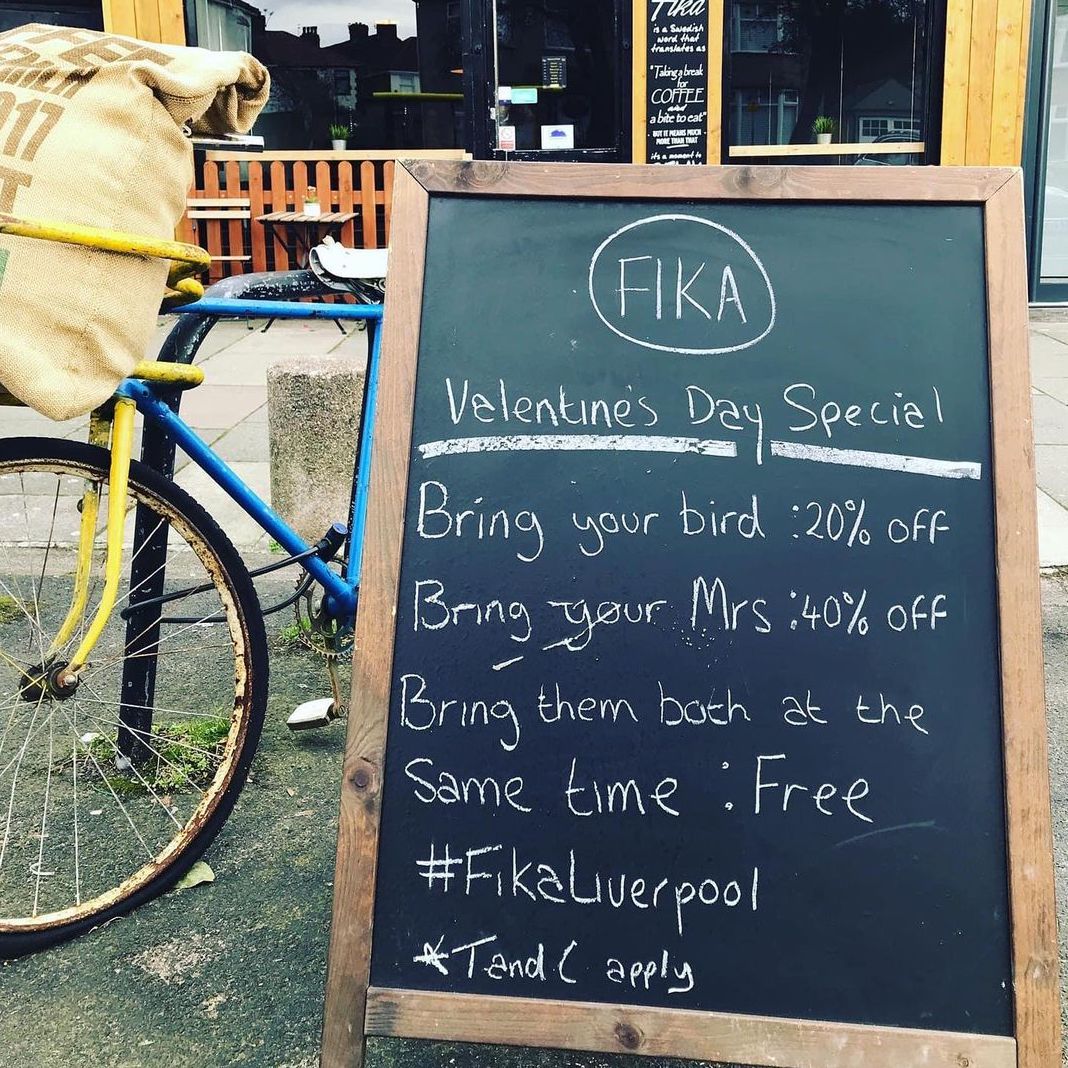 Fika
is a Swedish
word that
translates as
"Taking a break
for
COFFEE
and
a bite to eat"
BUT IT MEANS MUCH
MORE THAN THAT
its a moment to
2017
FIKA
Valentine's Day Special
Bring your bird : 20% off
Bring your Mrs : 40% off
Bring them both at the
Same time : Free
#FikaLiverpool
*T and C apply